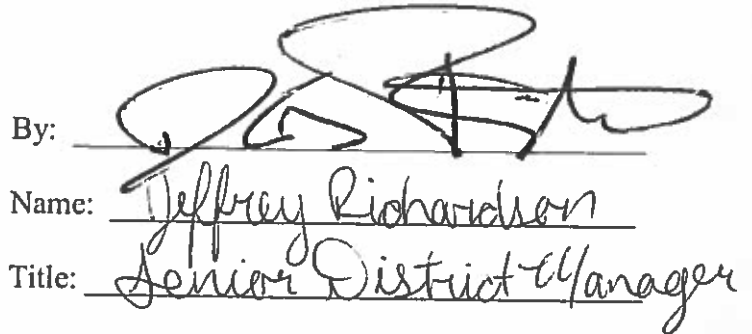 By:
Name: Jeffrey Richardson
Title: Senior District Manager